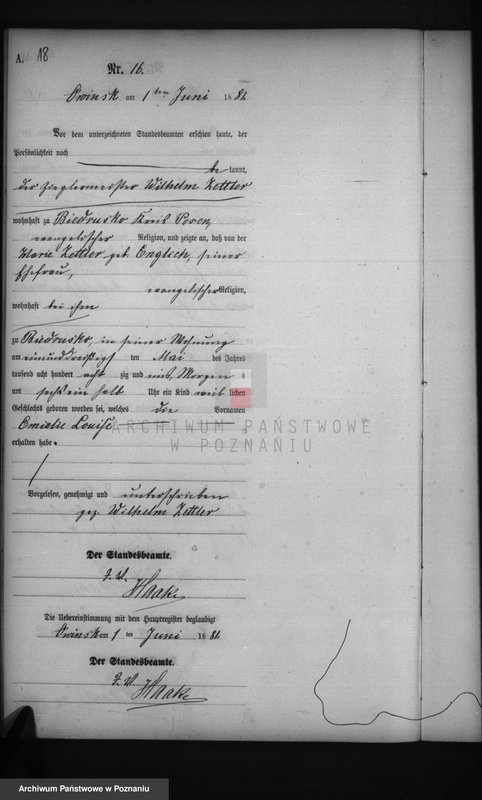 A. 18
Nr. 16.
Owinsk am 1 ten Juni 1882
Vor dem unterzeichneten Standesbeamten erschien heute, der
Persönlichkeit nach
be kannt,
der Zieglermeister Wilhelm Zettler
wohnhaft zu Biedrusko Kreis Posen,
evangelischer Religion, und zeigte an, daß von der
Marie Zettler geb. Englich, seiner
Ehefrau,
evangelischer Religion,
wohnhaft bei ihm
zu Biedrusko, in seiner Wohnung
am einunddreißigst ten Mai des Jahres
tausend acht hundert acht zig und Morgens
um sechs ein halb Uhr ein Kind weib lichen
Geschlechts geboren worden sei, welches die Vornamen
Emilie Louise
erhalten habe.
Vorgelesen, genehmigt und unterschrieben
gez. Wilhelm Zettler
Der Standesbeamte.
Haake
Die Uebereinstimmung mit dem Hauptregister beglaubigt
Owinsk am 1 ten Juni 1882
Der Standesbeamte.
Haake
ARCHIWUM PAŃSTWOWE
W POZNANIU
Archiwum Państwowe w Poznaniu